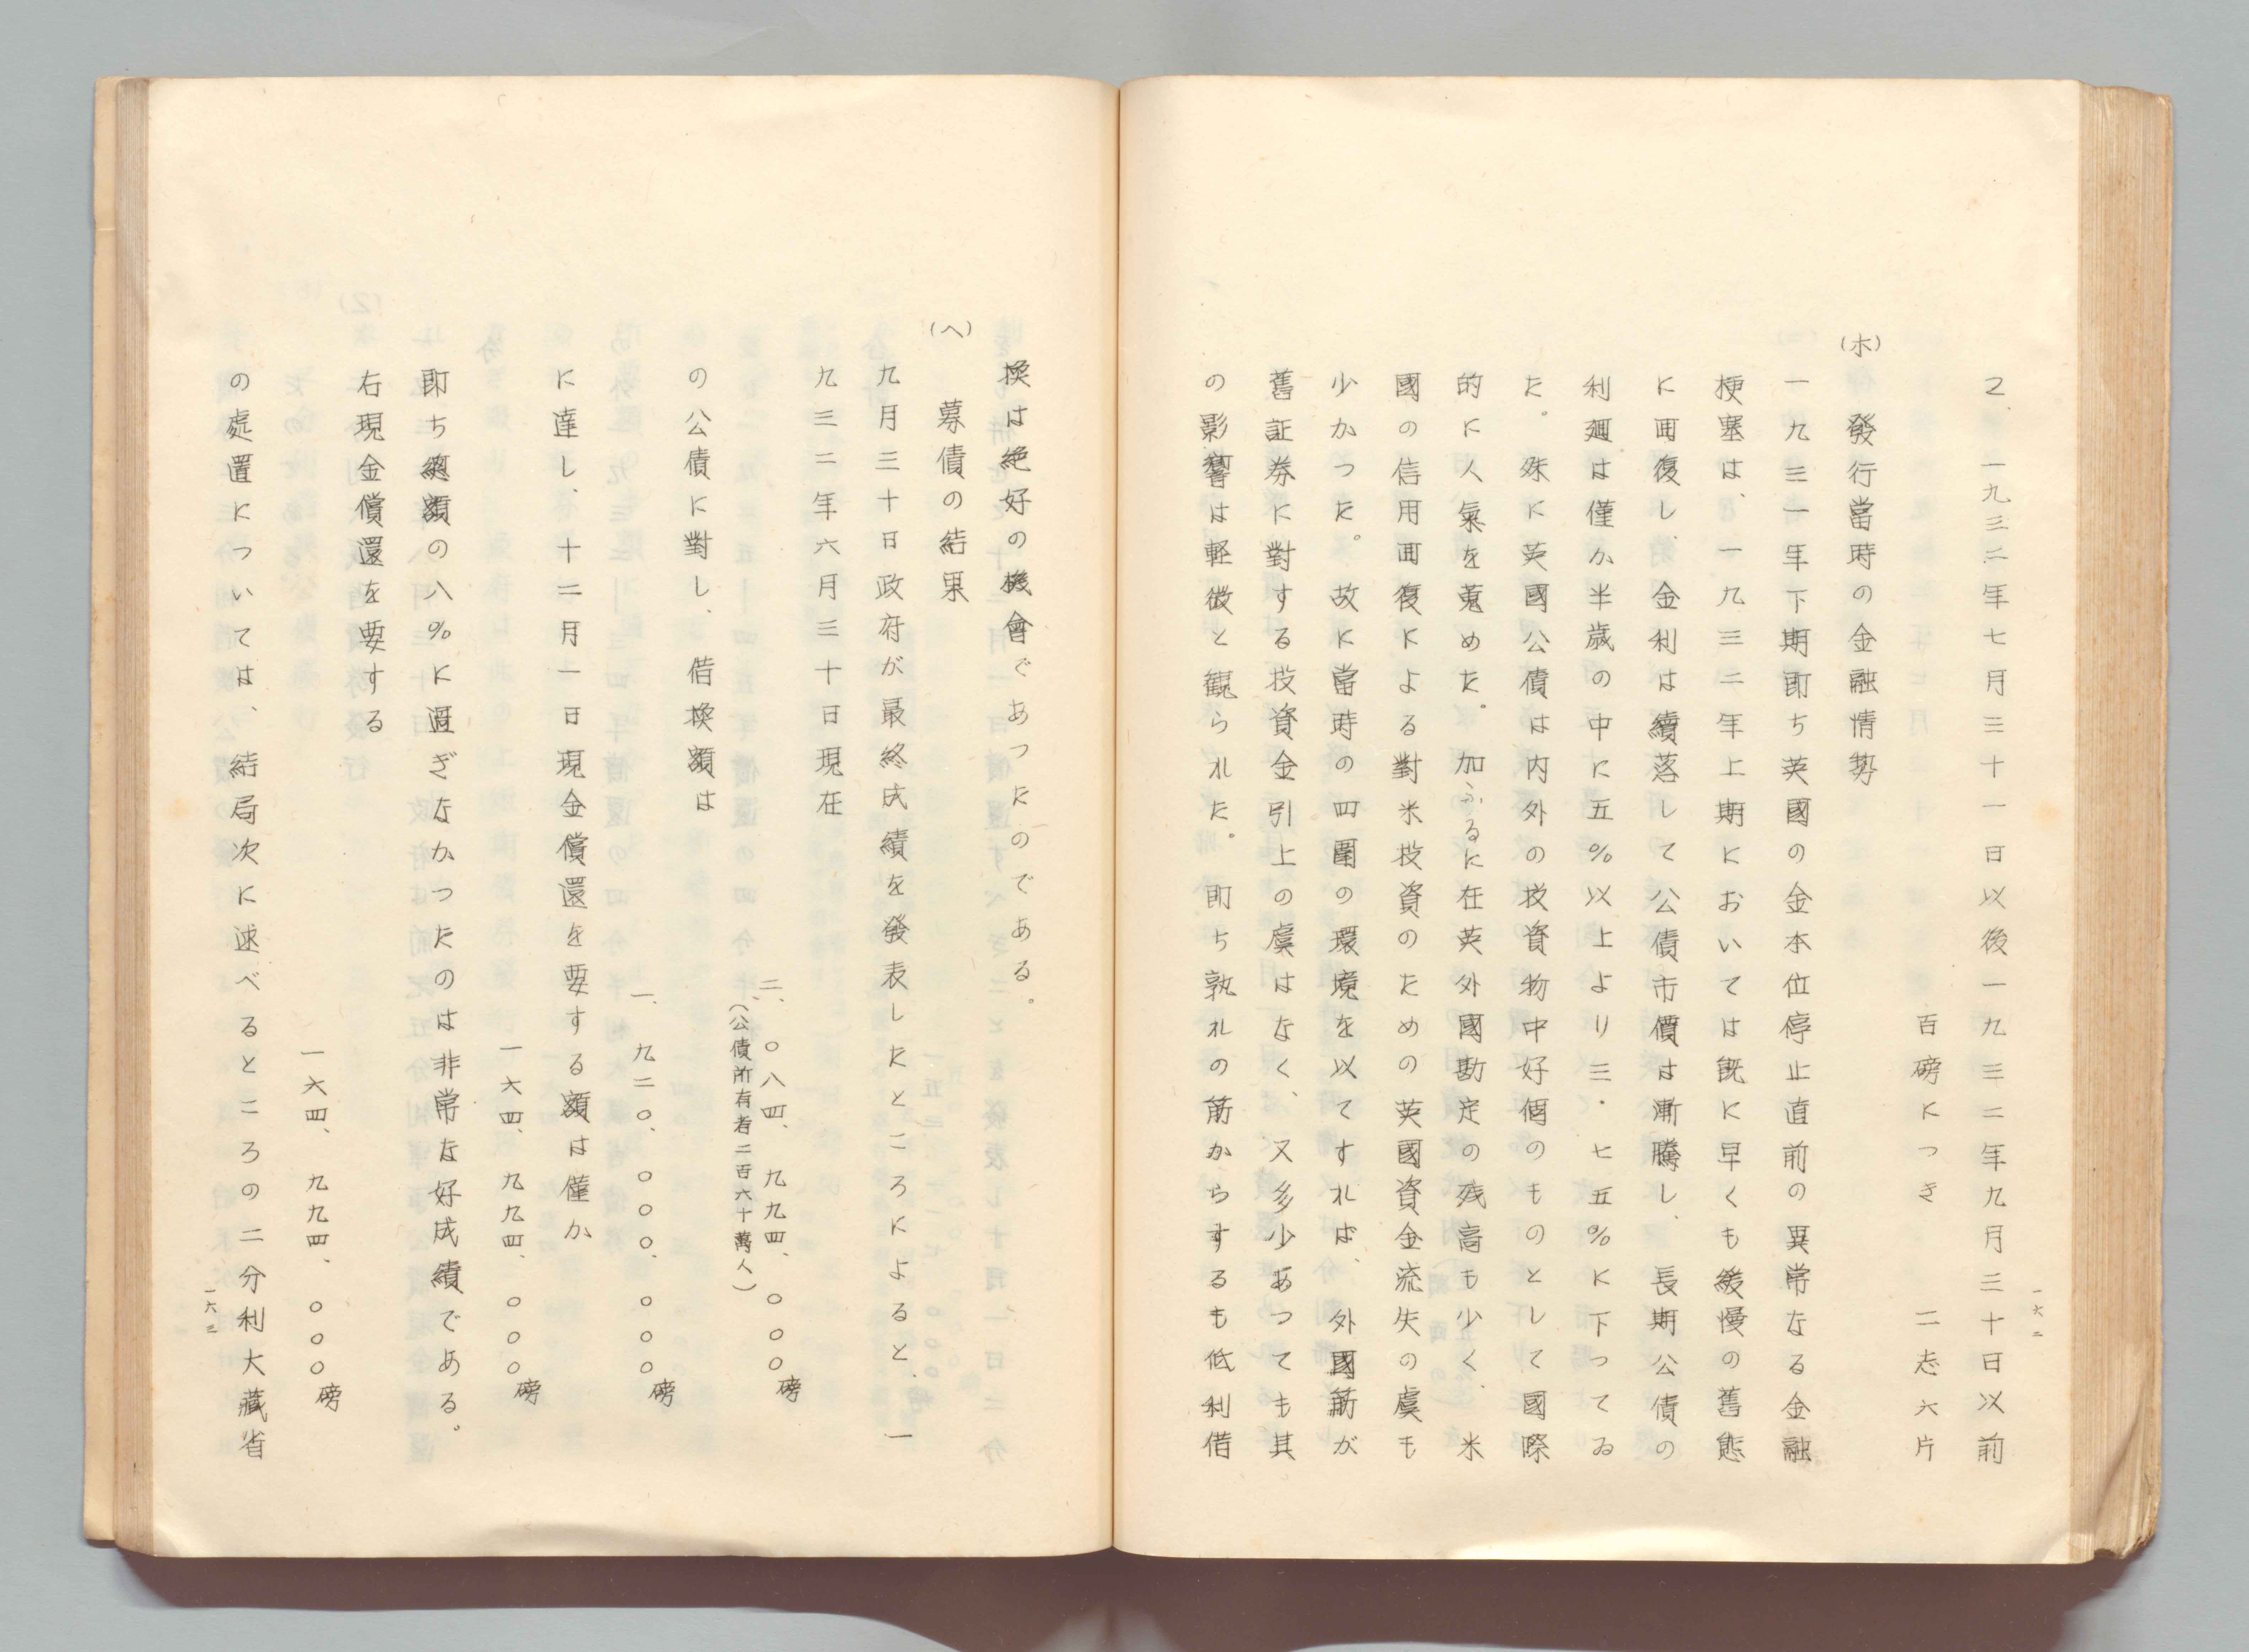 一六二
2、一九三二年七月三十一日以後一九三二年九月三十日以前
百磅につき　二志六片
(ホ)　發行當時の金融情勢
一九三一年下期即ち英國の金本位停止直前の異常なる金融
梗塞は、一九三二年上期においては旣に早くも緩慢の舊態
に囬復し、金利は續落して公債市價は漸騰し、長期公債の
利廻は僅か半歳の中に五%以上より三・七五%に下つてゐ
た。殊に英國公債は内外の投資物中好個のものとして國際
的に人氣を蒐めた。加ふるに在英外國勘定の残高も少く、米
國の信用囬復による對米投資のための英國資金流失の虞も
少かつた。故に當時の四圍の環境を以てすれば、外國筋が
舊証券に對する投資金引上の虞はなく、又多少あつても其
の影響は軽微と観られた。即ち孰れの筋からするも低利借
換は絶好の機會であつたのである。
(ヘ)　募債の結果
九月三十日政府が最終成績を發表したところによると、一
九三二年六月三十日現在
二、〇八四、九九四、〇〇〇磅
(公債所有者二百六十萬人)
の公債に對し、借換額は
一、九二〇、〇〇〇、〇〇〇磅
に達し、十二月一日現金償還を要する額は僅か
一六四、九九四、〇〇〇磅
即ち總額の八%に過ぎなかつたのは非常な好成績である。
右現金償還を要する
一六四、九九四、〇〇〇磅
の處置については、結局次に述べるところの二分利大藏省
一六三